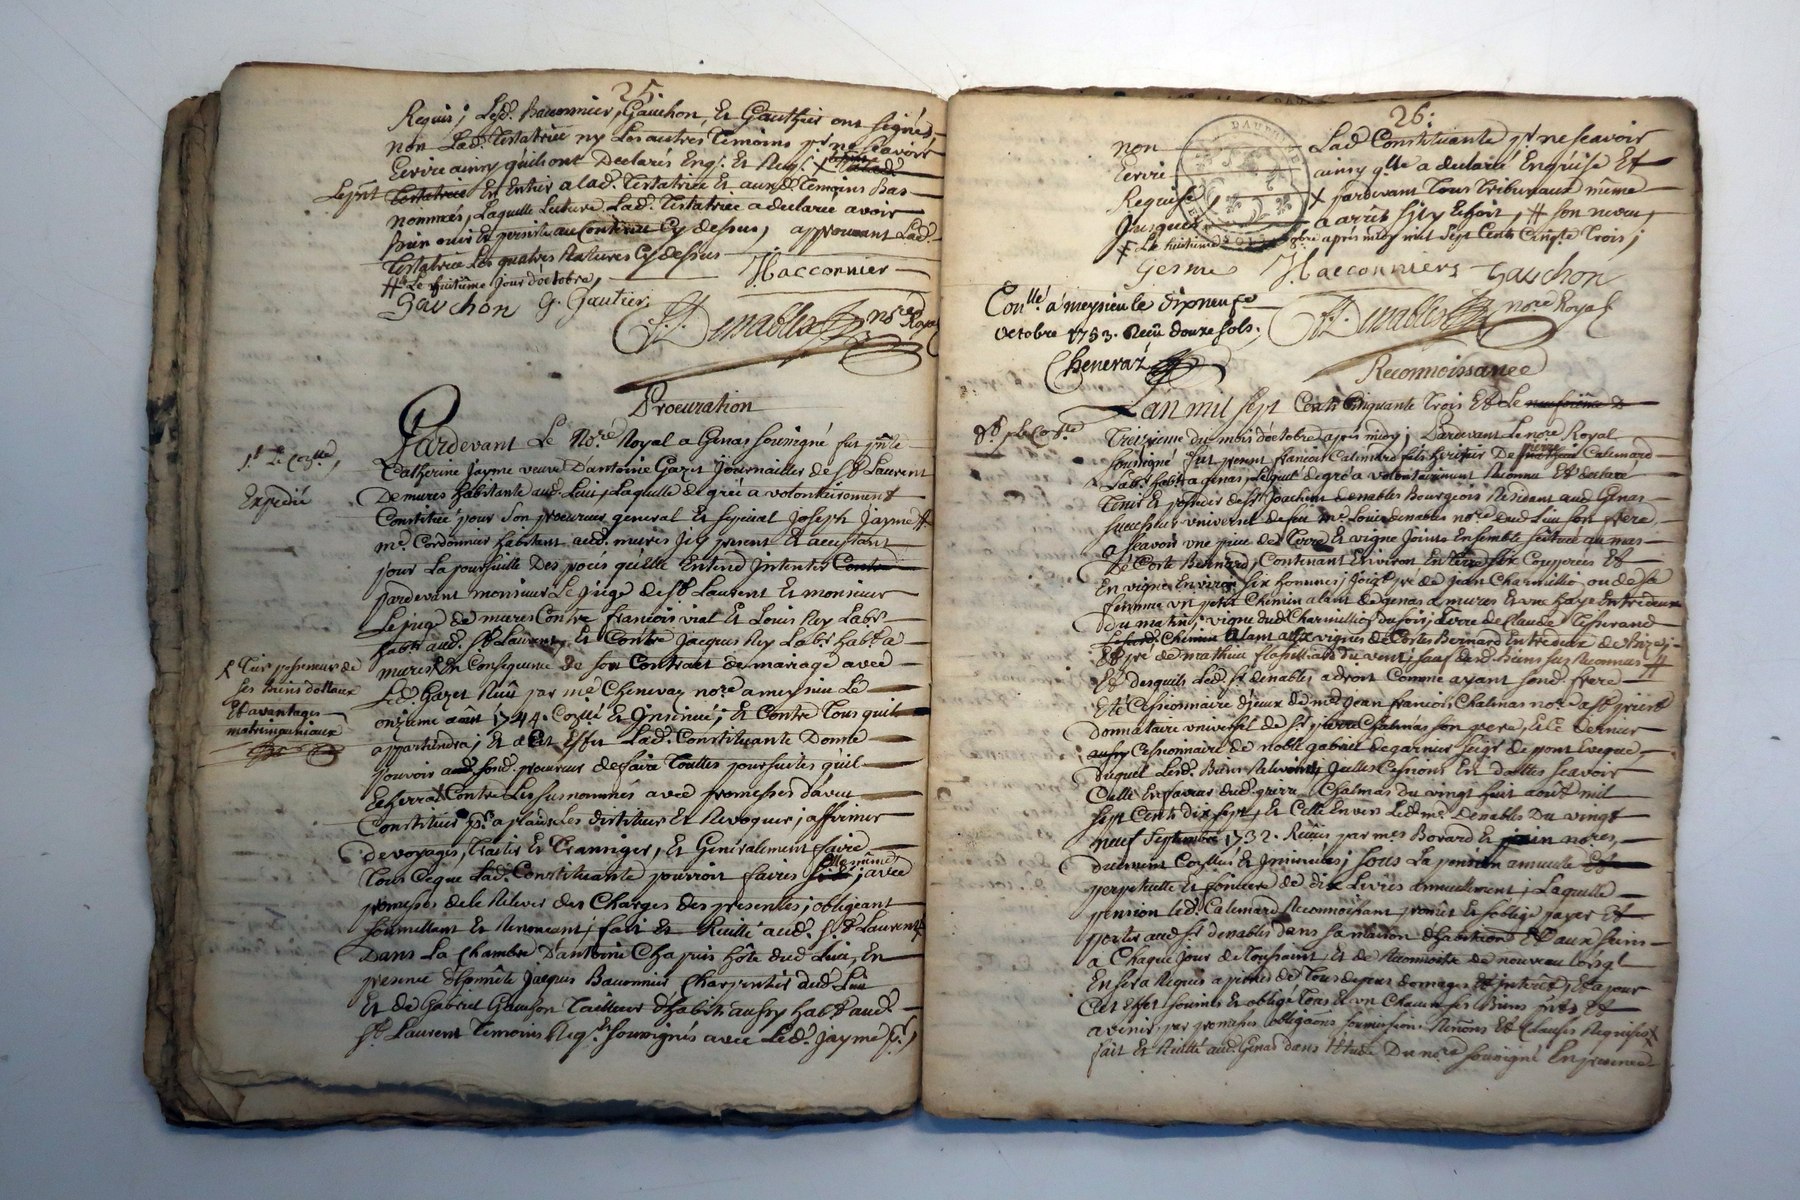 25.
Requis; Lesd. Baconnier, Gauchon, Et Gauthier ont signés
non Lad. Testatrice ny Les autres Temoins pr. ne scavoir
Ecrire ainsy qu'ils ont Declarés Enq. Et Req.
Testatrice En Entier a lad. Testatrice Et auxd. Temoins bas
nommés, Laquelle Lecture Lad. Testatrice a declaré avoir
bien ouie Et persiste au Contenu Cy dessus, approuvant Lad.
Testatrice Les quatres Ratures Cy dessus
Le huitième jour d'octobre,
Gauchon G. Gautier
Denablex nore Royal
Procuration
Pardevant Le Nore Royal a Genas soussigné fut pnte
Catherine Jayme veuve D'antoine Gazet Journaillier de St Laurent
De mures habitante aud. Lieu, Laquelle de gré a volontairement
Constitué pour Son procureur general Et special Joseph Jayme
md Cordonnier habitant aud. mures Icy present Et acceptant
pour La poursuitte Des procés quelle Entend Intenter Contre
pardevant monsieur Le Juge de St Laurent Et monsieur
Le juge de mures Contre francois vial Et Louis Rey Labr
habts aud. St Laurent, Et Contre Jacques Rey Labr habt a
mures En Consequence de son Contrat de mariage avec
Led. Gazet Receu par me Chenevaz nore a meysieu Le
onzieme août 1744. Coñllé Et Insinué; Et Contre Tous qu'il
appartiendra; Et a Cet Effet Lad. Constituante Donne
pouvoir aud. sond. procureur de faire Toutes poursuites qu'il
Echerra Contre Les susnommés avec promesses d'aveu
Constituer Prs a plaids Les destituer Et Revoquer; affirmer
De voyages, Traiter Et Transiger, Et Generalement faire
Tout Ceque Lad. Constituante pourroit faires Elle même; avec
promesses de le Relever des Charges des presentes; obligeant
soumettant Et Renonceant; fait Et Recitté aud. St Laurent
Dans La Chambre D'antoine Chapuis hôte dud. Lieu, En
presence d'honnete Jacques Baconnier Charpentier dud. Lieu
Et de Gabriel Gauchon Tailleur d'habits aussy habt aud.
St Laurent Temoins Reqs soussignés avec Led. Jayme
Expedié
Sur
ses biens dottaux
Et avantages
matrimoniaux
26.
non Lad. Constituante pr ne scavoir
Ecrire ainsy qlle a declaré Enquise Et
Requise, pardevant Tous Tribunaux même
Jusques a arrêt
Le huitieme apres midy mil sept Cents Cinqte Trois;
Gauchon
Conllé a meysieu le dixneufe
octobre 1753. Receu douze sols.
Chenevaz
Denablex nore Royal
Reconnoissance
Lan mil sept Cents Cinquante Trois Et Le
Treizieme du mois d'octobre apres midy; Pardevant Le nore Royal
soussigné fut present francois Calemard fils heritier De Calemard
Labr habt a genas, Lequel de gré a volontairement Reconnu Et declaré
Tenir Et posseder de Sr Joachim denables Bourgeois Resident aud. Genas
successeur universel de feu me Louis denables nore dud. Lieu son frere
a scavoir une piece de Terre Et vigne Joints Ensemble scitue au mas
de Coste Bernard, Contenant Environ En Terre six Coupées Et
En vigne Environ six hommes; Joint pré de Jean Charmillio ou de sa
femme un petit Chemin alant de genas a mures Et une haye Entre deux
du matin; vigne dud. Charmillio du soir; Terre de Claude Tisserand
Chemin alant aux vignes de Costes Bernard Entre deux de Bize;
Et pré de mathieu du vent; sauf
Et desquels Led. Sr denables a droit Comme ayant sond. frere
Eté Cessionnaire d'yceux de me Jean francois Chalmas nore a St priest
Donnataire universel de Sr pierre Chalmas son pere, Et Ce dernier
aussy Cessionnaire de noble gabriel de garnier seigr de pont Eveque,
Duquel Lesd. Biens Relevoient, Jcelles Cessions En dattes scavoir
Celle En faveur dud. pierre Chalmas du vingt huit aout mil
sept Cents dix sept, Et Celle Envers Led. me Denables Du vingt
neuf Septembre 1732. Receues par mes Bovard Et nores,
duement Coñllés Et Insinués; sous La pension annuelle Et
perpetuelle Et fonciere de dix Livres annuellement; Laquelle
pension Led. Calemard Reconnoissant promet Et s'oblige payer Et
porter aud. Sr denables dans sa maison d'habitaon Et aux siens
a Chaque Jour de Toussaint, Et de Reconnoitre de nouveau Lorsql
En sera Requis a peine de Tous depens domages Et interêts; Et a pour
Cet effet soumis Et obligé Tous Et un Chacun ses Biens pnts Et
avenir, par promesses obligaons soumission Renons Et Clauses Requises
fait Et Recitté aud. Genas dans Etude Du nore soussigné En presence